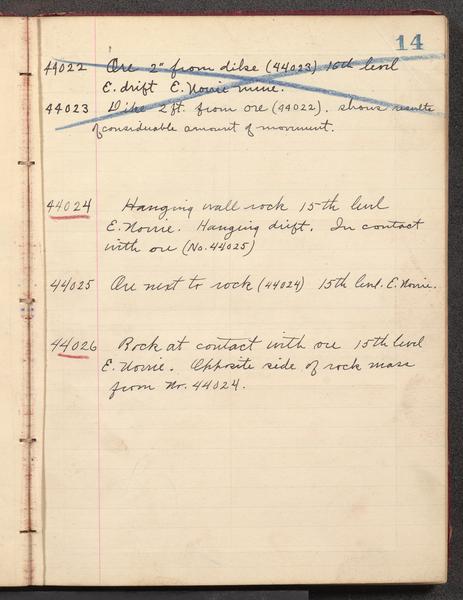 14
44022 Ore 2" from dike (44023) 16th level
E. drift E. Norrie mine.
44023 Dike 2 ft. from ore (44022). shows results
of considerable amount of movement.
44024 Hanging wall rock 15th level
E. Norrie. Hanging drift. In contact
with ore (No. 44025)
44025 Ore next to rock (44024) 15th level. E. Norrie.
44026 Rock at contact with ore 15th level
E. Norrie. Opposite side of rock mass
from No. 44024.